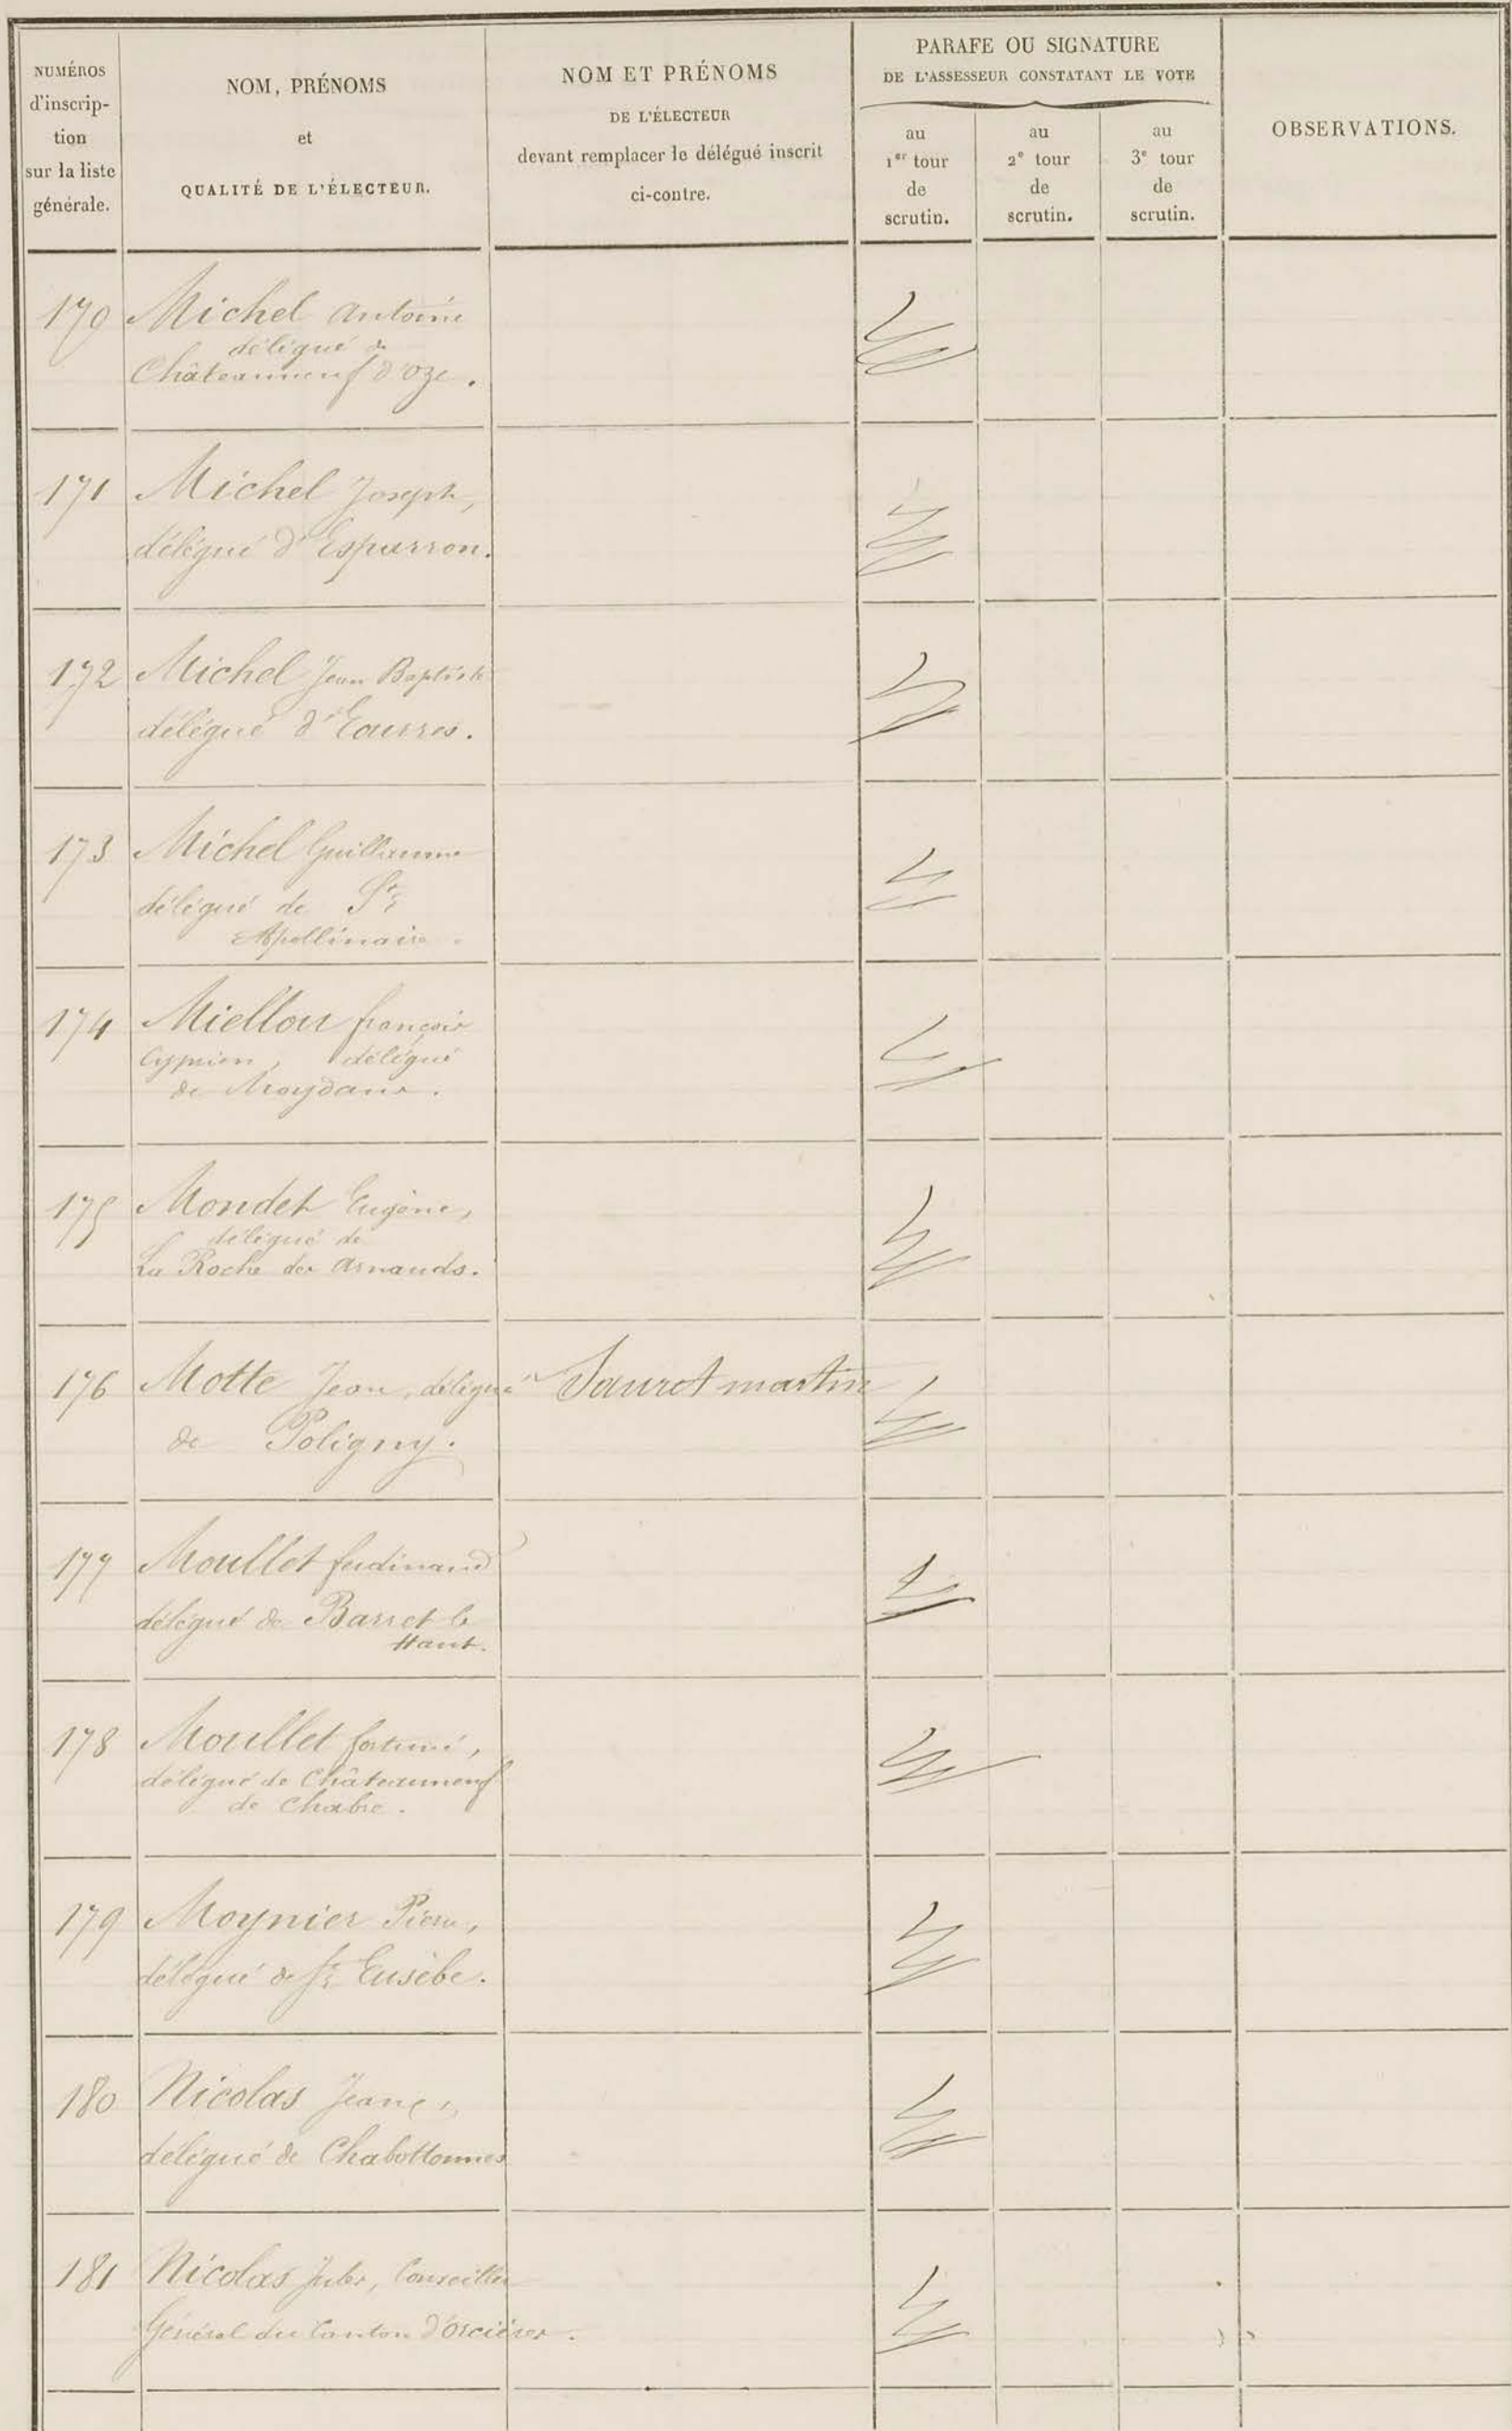 NUMÉROS
d'inscrip-
tion
sur la liste
générale.
NOM, PRÉNOMS
et
QUALITÉ DE L'ÉLECTEUR.
NOM ET PRÉNOMS
DE L'ÉLECTEUR
devant remplacer le délégué inscrit
ci-contre.
PARAFE OU SIGNATURE
DE L'ASSESSEUR CONSTATANT LE VOTE
au
1er tour
de
scrutin.
au
2e tour
de
scrutin.
au
3e tour
de
scrutin.
OBSERVATIONS.
170 Michel Antoine
délégué de
Châteauneuf d'Oze.
171 Michel Joseph,
délégué d'Esparron.
172 Michel Jean Baptiste
délégué d'Eourres.
173 Michel Guillaume
délégué de St
Apollinaire.
174 Miellou françois
Cyprien, délégué
de Moydans.
175 Mondet Eugène,
délégué de
La Roche des Arnauds.
176 Motte Jean, délégué Sauret martin
de Poligny.
177 Moullet ferdinand
délégué de Barret le
Haut.
178 Moullet fortuné,
délégué de Châteauneuf
de Chabre.
179 Moynier Pierre,
délégué de St Eusèbe.
180 Nicolas Jean
délégué de Chabottonnes
181 Nicolas Jules, Conseiller
Général du Canton d'Orcières.